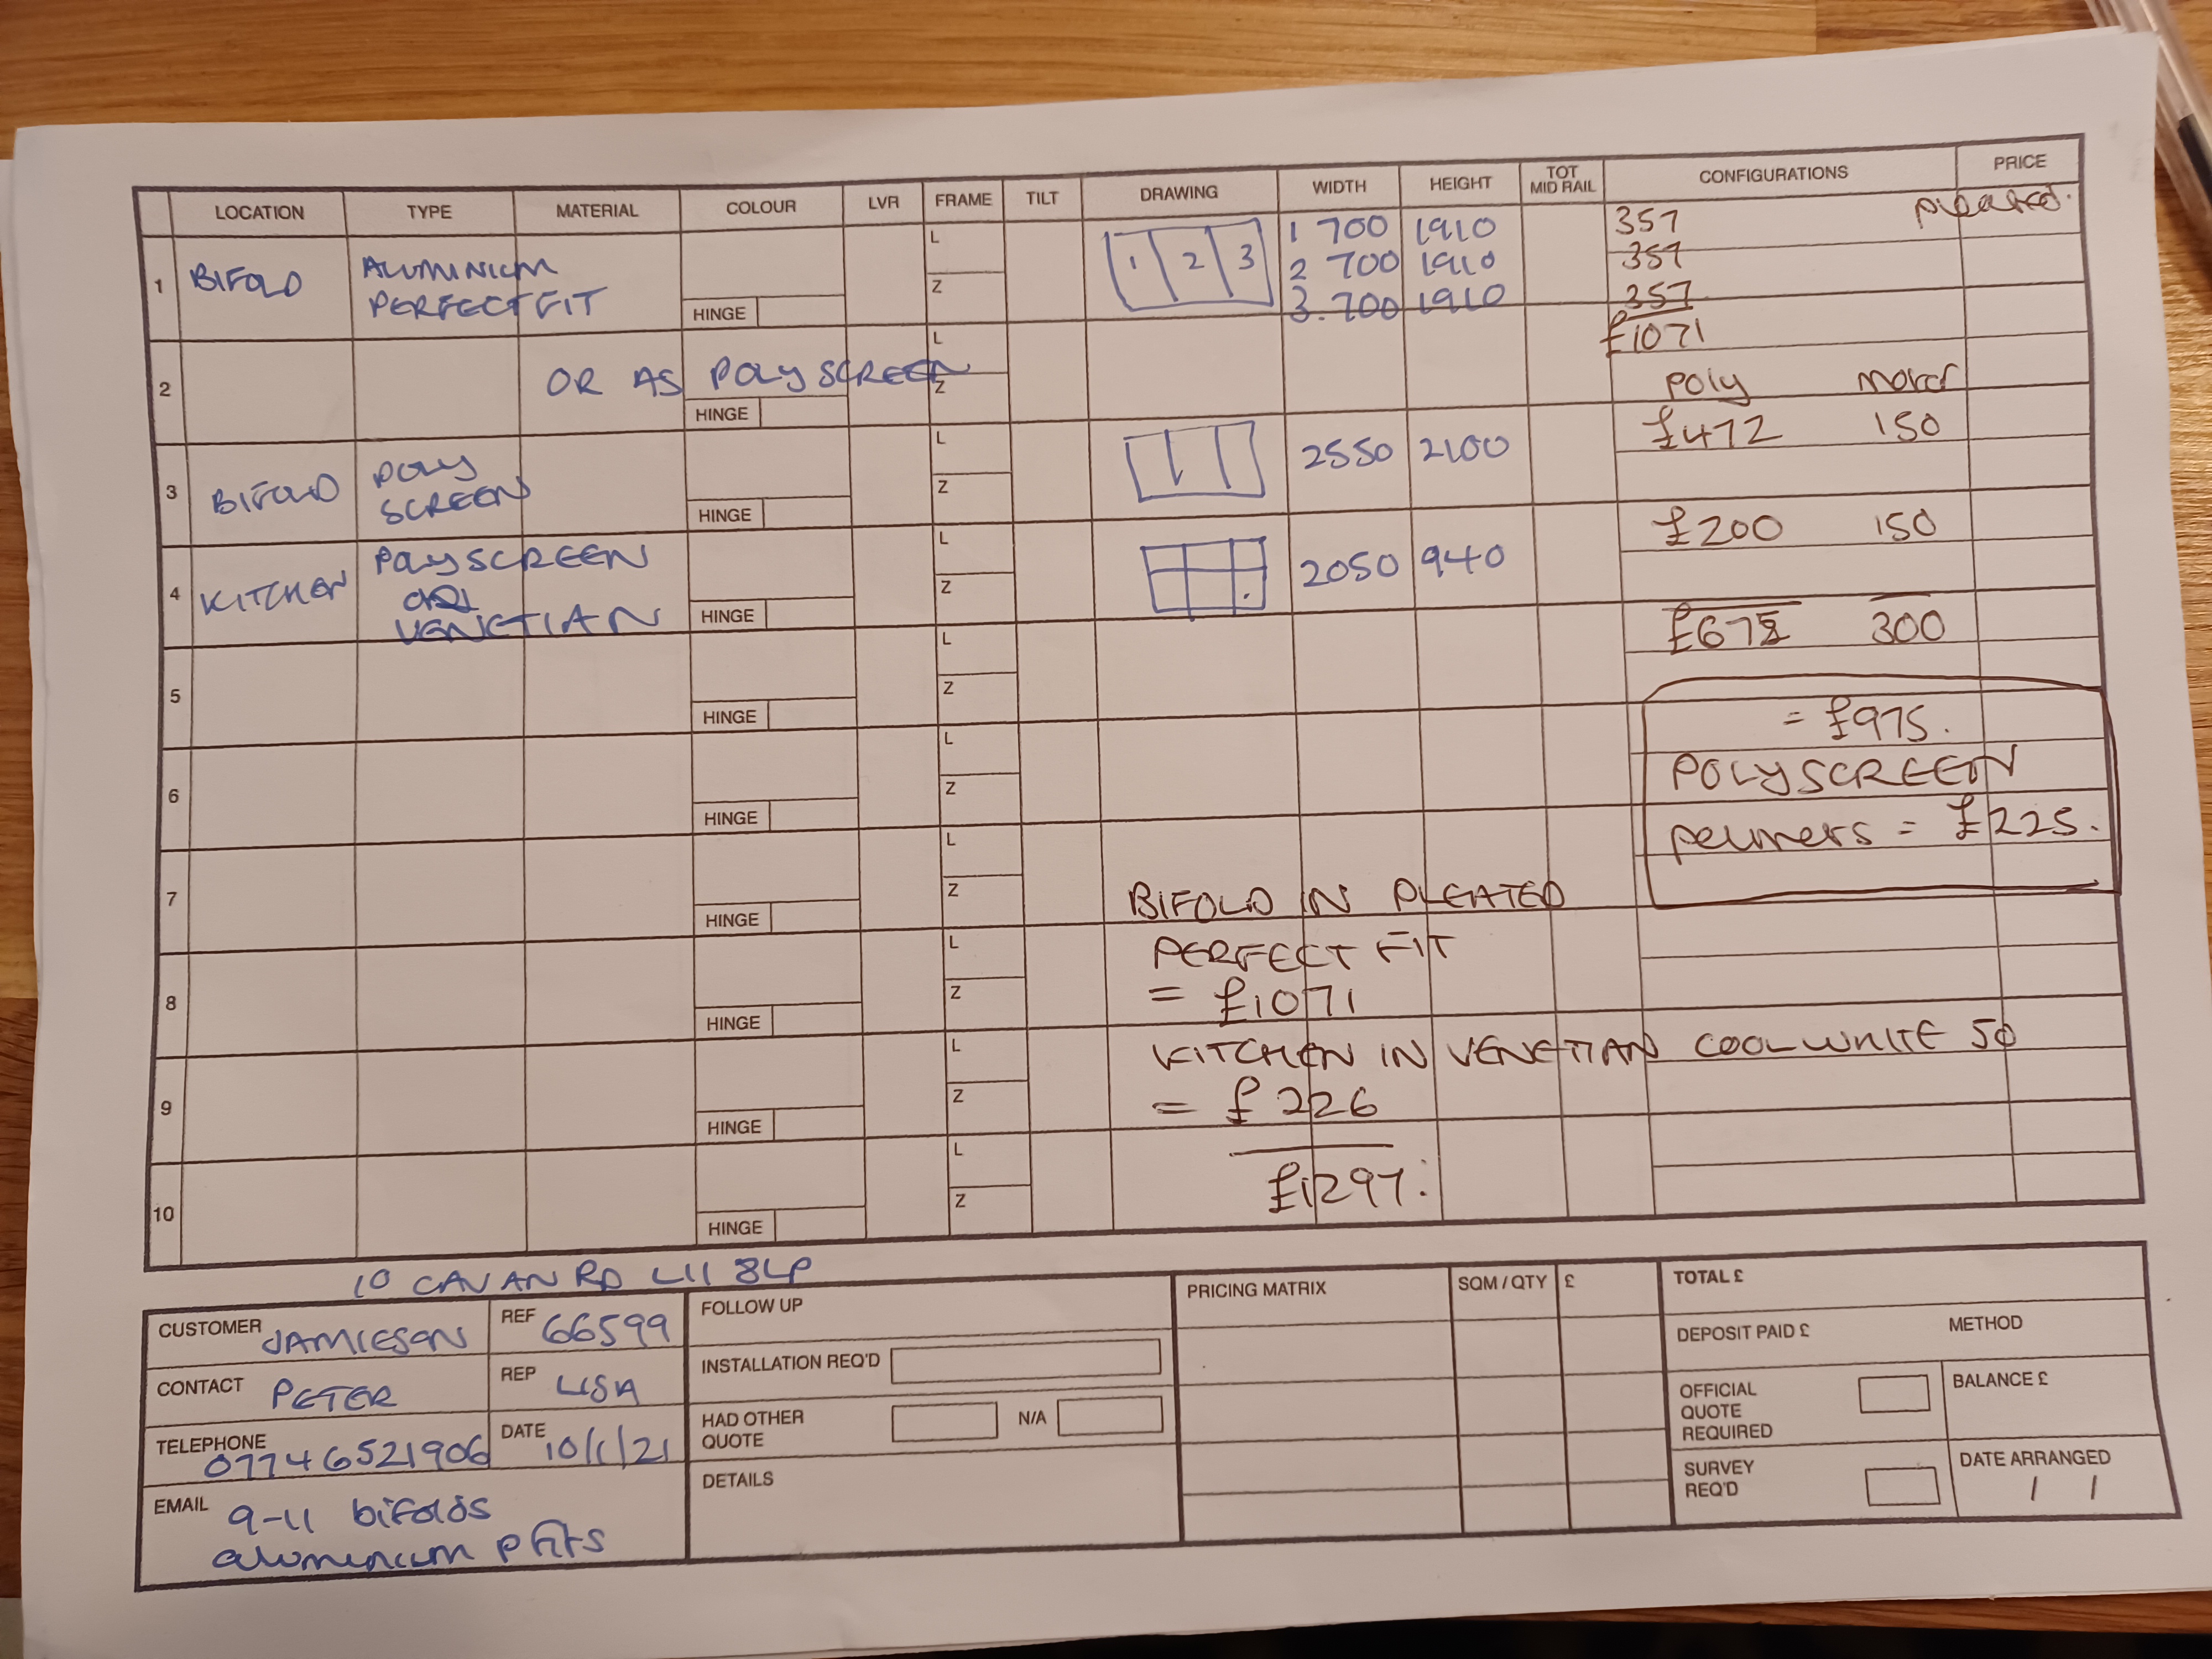 LOCATION TYPE MATERIAL COLOUR LVR FRAME TILT DRAWING WIDTH HEIGHT TOT MID RAIL CONFIGURATIONS PRICE
1 BIFOLD ALUMINIUM PERFECT FIT HINGE L Z 1 2 3
1 700 1910 357 pleated.
2 700 1910 357
3. 700 1910 357
£1071
2 OR AS POLYSCREEN HINGE L Z
poly motor
£472 150
3 BIFOLD POLY SCREEN HINGE L Z 2550 2100
£200 150
4 KITCHEN POLYSCREEN OR VENETIAN HINGE L Z 2050 940
£675 300
5 HINGE L Z
= £975.
6 HINGE L Z
POLYSCREEN
pelmets = £225.
7 HINGE L Z
BIFOLD IN PLEATED
8 HINGE L Z
PERFECT FIT
= £1071
9 HINGE L Z
KITCHEN IN VENETIAN COOLWHITE 50
= £226
10 HINGE L Z
£1297.
10 CAVAN RD L11 8LP
CUSTOMER JAMIESON REF 66599
CONTACT PETER REP LISA
TELEPHONE 07746521906 DATE 10/1/21
EMAIL 9-11 bifolds
aluminium pfits
FOLLOW UP
INSTALLATION REQ'D
HAD OTHER QUOTE N/A
DETAILS
PRICING MATRIX SQM / QTY £
TOTAL £
DEPOSIT PAID £ METHOD
OFFICIAL QUOTE REQUIRED BALANCE £
SURVEY REQ'D DATE ARRANGED
/ /